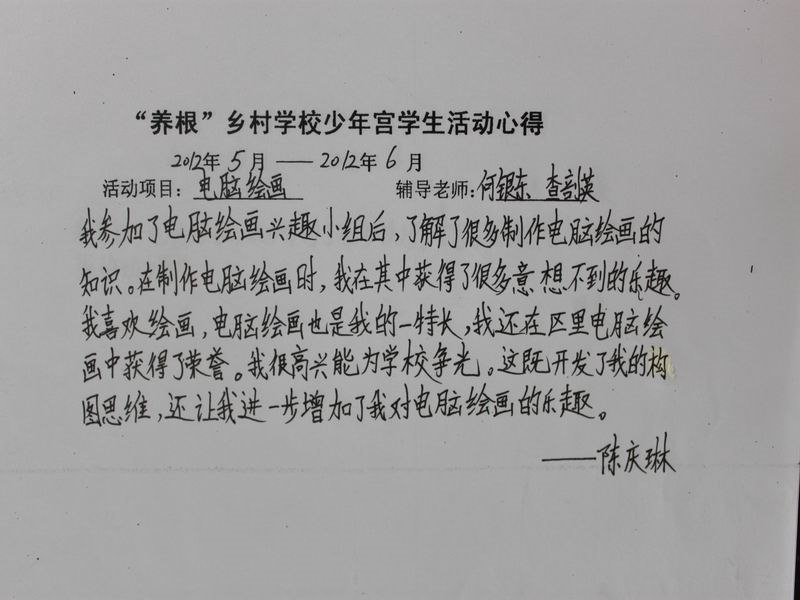 “养根”乡村学校少年宫学生活动心得
2012年5月——2012年6月
活动项目：电脑绘画 辅导老师：何银东 查剖英
我参加了电脑绘画兴趣小组后，了解了很多制作电脑绘画的
知识。在制作电脑绘画时，我在其中获得了很多意想不到的乐趣。
我喜欢绘画，电脑绘画也是我的一特长，我还在区里电脑绘
画中获得了荣誉。我很高兴能为学校争光。这既开发了我的构
图思维，还让我进一步增加了我对电脑绘画的乐趣。
——陈庆琳